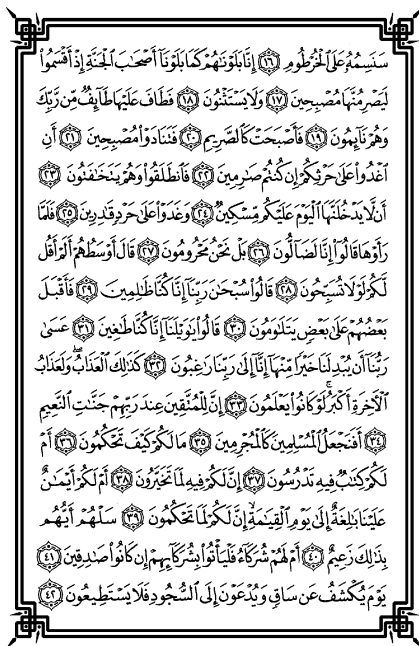 سَنَسِمُهُۥ عَلَى ٱلْخُرْطُومِ ١٦ إِنَّا بَلَوْنَٰهُمْ كَمَا بَلَوْنَآ أَصْحَٰبَ ٱلْجَنَّةِ إِذْ أَقْسَمُوا۟
لَيَصْرِمُنَّهَا مُصْبِحِينَ ١٧ وَلَا يَسْتَثْنُونَ ١٨ فَطَافَ عَلَيْهَا طَآئِفٌ مِّن رَّبِّكَ
وَهُمْ نَآئِمُونَ ١٩ فَأَصْبَحَتْ كَٱلصَّرِيمِ ٢٠ فَتَنَادَوْا۟ مُصْبِحِينَ ٢١ أَنِ
ٱغْدُوا۟ عَلَىٰ حَرْثِكُمْ إِن كُنتُمْ صَٰرِمِينَ ٢٢ فَٱنطَلَقُوا۟ وَهُمْ يَتَخَٰفَتُونَ ٢٣
أَن لَّا يَدْخُلَنَّهَا ٱلْيَوْمَ عَلَيْكُم مِّسْكِينٌ ٢٤ وَغَدَوْا۟ عَلَىٰ حَرْدٍ قَٰدِرِينَ ٢٥ فَلَمَّا
رَأَوْهَا قَالُوٓا۟ إِنَّا لَضَآلُّونَ ٢٦ بَلْ نَحْنُ مَحْرُومُونَ ٢٧ قَالَ أَوْسَطُهُمْ أَلَمْ أَقُل
لَّكُمْ لَوْلَا تُسَبِّحُونَ ٢٨ قَالُوا۟ سُبْحَٰنَ رَبِّنَآ إِنَّا كُنَّا ظَٰلِمِينَ ٢٩ فَأَقْبَلَ
بَعْضُهُمْ عَلَىٰ بَعْضٍ يَتَلَٰوَمُونَ ٣٠ قَالُوا۟ يَٰوَيْلَنَآ إِنَّا كُنَّا طَٰغِينَ ٣١ عَسَىٰ
رَبُّنَآ أَن يُبْدِلَنَا خَيْرًا مِّنْهَآ إِنَّآ إِلَىٰ رَبِّنَا رَٰغِبُونَ ٣٢ كَذَٰلِكَ ٱلْعَذَابُ ۖ وَلَعَذَابُ
ٱلْءَاخِرَةِ أَكْبَرُ ۚ لَوْ كَانُوا۟ يَعْلَمُونَ ٣٣ إِنَّ لِلْمُتَّقِينَ عِندَ رَبِّهِمْ جَنَّٰتِ ٱلنَّعِيمِ
٣٤ أَفَنَجْعَلُ ٱلْمُسْلِمِينَ كَٱلْمُجْرِمِينَ ٣٥ مَا لَكُمْ كَيْفَ تَحْكُمُونَ ٣٦ أَمْ
لَكُمْ كِتَٰبٌ فِيهِ تَدْرُسُونَ ٣٧ إِنَّ لَكُمْ فِيهِ لَمَا تَخَيَّرُونَ ٣٨ أَمْ لَكُمْ أَيْمَٰنٌ
عَلَيْنَا بَٰلِغَةٌ إِلَىٰ يَوْمِ ٱلْقِيَٰمَةِ ۙ إِنَّ لَكُمْ لَمَا تَحْكُمُونَ ٣٩ سَلْهُمْ أَيُّهُم
بِذَٰلِكَ زَعِيمٌ ٤٠ أَمْ لَهُمْ شُرَكَآءُ فَلْيَأْتُوا۟ بِشُرَكَآئِهِمْ إِن كَانُوا۟ صَٰدِقِينَ ٤١
يَوْمَ يُكْشَفُ عَن سَاقٍ وَيُدْعَوْنَ إِلَى ٱلسُّجُودِ فَلَا يَسْتَطِيعُونَ ٤٢